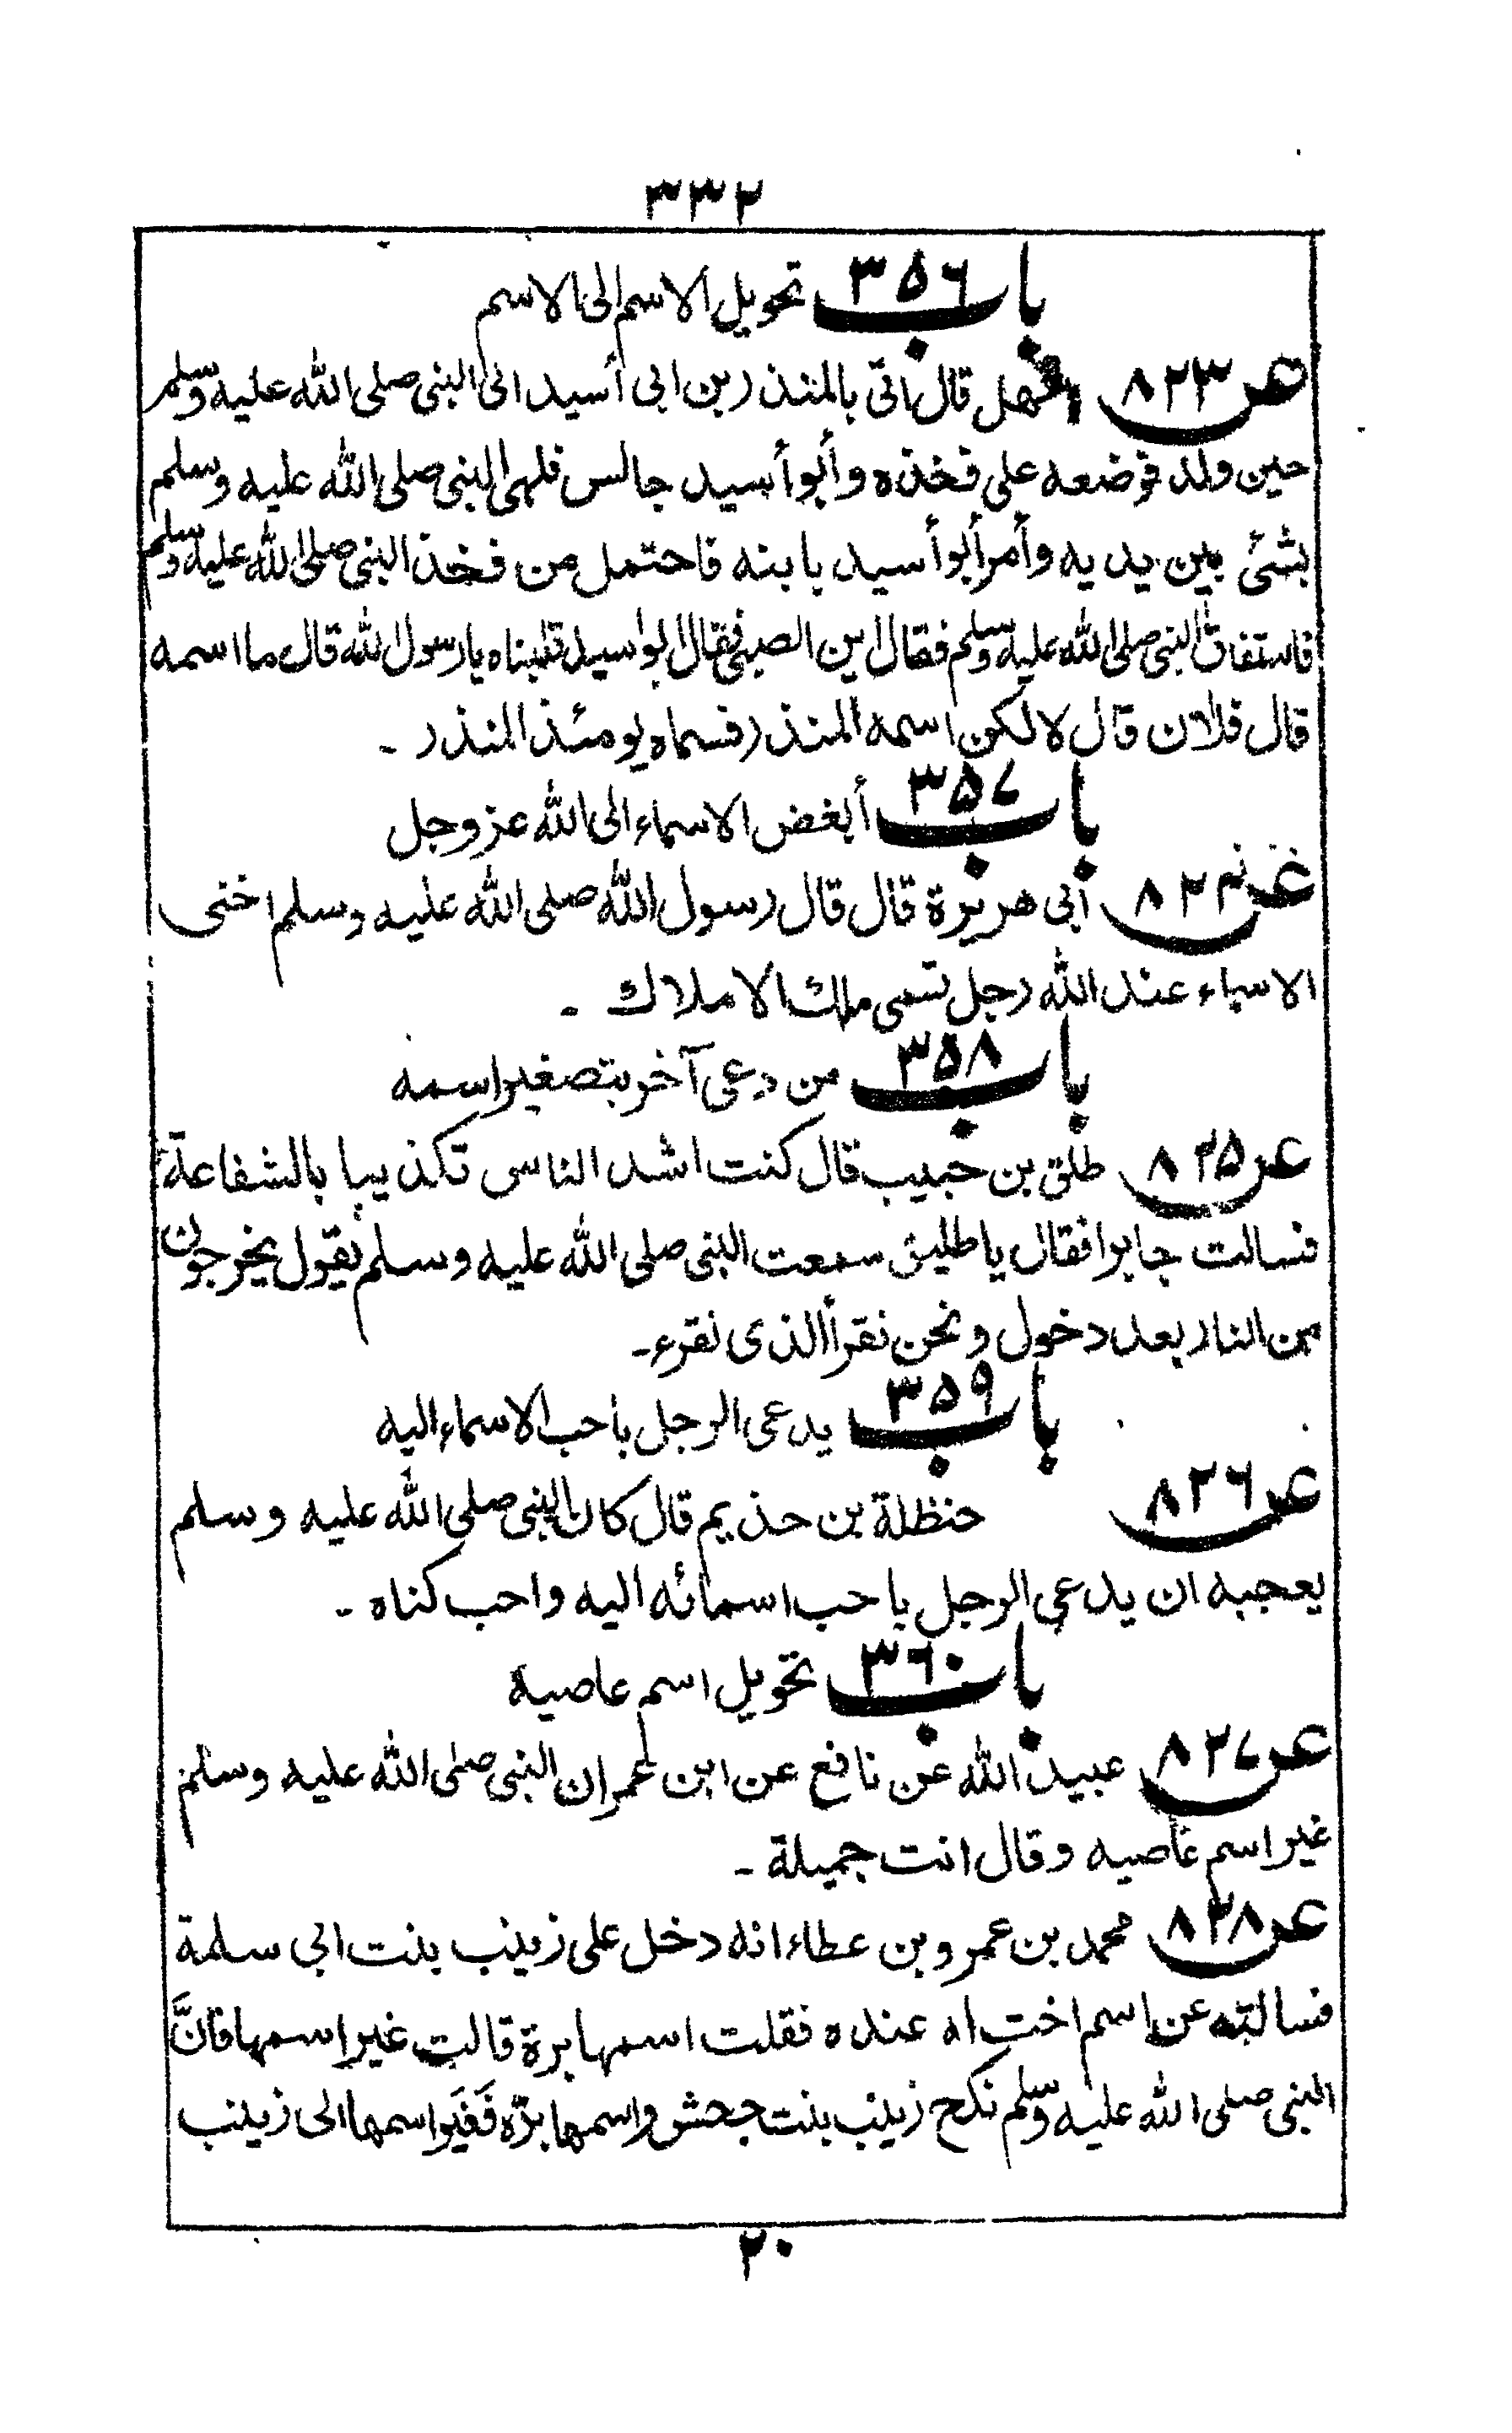 ٣٣٢
باب ٣٥٦ تحويل الاسم الى الاسم
عن ٨٢٣ سهل قال اتى بالمنذر بن ابى أسيد الى النبى صلى الله عليه وسلم
حين ولد فوضعه على فخذه وأبو أسيد جالس فلهى النبى صلى الله عليه وسلم
بشئ بين يديه وأمر أبو أسيد بابنه فاحتمل من فخذ النبى صلى الله عليه وسلم
فاستفاق النبى صلى الله عليه وسلم فقال اين الصبى فقال ابو اسيد قلبناه يا رسول الله قال ما اسمه
قال فلان قال لا لكن اسمه المنذر فسماه يومئذ المنذر ـ
باب ٣٥٧ أبغض الاسماء الى الله عز وجل
عن ٨٢٤ أبى هريرة قال قال رسول الله صلى الله عليه وسلم اخنى
الاسماء عند الله رجل تسمى ملك الاملاك ـ
باب ٣٥٨ من دعى آخر بتصغير اسمه
عن ٨٢٥ طلق بن حبيب قال كنت اشد الناس تكذيبا بالشفاعة
فسالت جابرا فقال يا طليق سمعت النبى صلى الله عليه وسلم يقول يخرجون
من النار بعد دخول ونحن نقرأ الذى نقرء ـ
باب ٣٥٩ يدعى الرجل باحب الاسماء اليه
عن ٨٢٦ حنظلة بن حذيم قال كان النبى صلى الله عليه وسلم
يعجبه ان يدعى الرجل باحب اسمائه اليه واحب كناه ـ
باب ٣٦٠ تحويل اسم عاصية
عن ٨٢٧ عبيد الله عن نافع عن ابن عمر ان النبى صلى الله عليه وسلم
غير اسم عاصيه وقال انت جميلة ـ
عن ٨٢٨ محمد بن عمرو بن عطاء انه دخل على زينب بنت ابى سلمة
فسالته عن اسم اخت له عنده فقلت اسمها برة قالت غير اسمها فانَّ
النبى صلى الله عليه وسلم نكح زينب بنت جحش واسمها برّه فَغَير اسمها الى زينب
٢٠